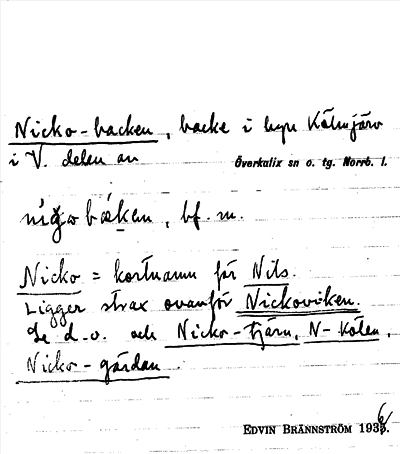 Nicko-backen, backe i byn Kälmjärv
i V. delen av
Överkalix sn o. tg. Norrb. l.
bäken, bf. m.
Nicko = kortnamn för Nils.
Ligger strax ovanför Nickoviken.
Se d.o. och Nicko-tjärn, N-kölen,
Nicko-gärdan
EDVIN BRÄNNSTRÖM 1936.